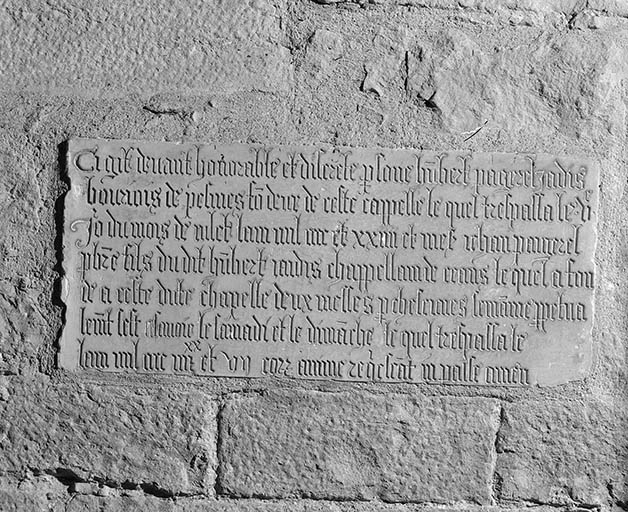 Ci gist devant honorable et discrete psone hūbert paneret jadis
bourjois de pesmes fōdeur de ceste cappelle le quel trespassa le di
jo du mois de mil cccc et xxiiii et mess jehan paneret
pbre fils du dit hūbert jadis chappellain de ceans le quel a fon
de a ceste dite chapelle deux messes p chescune semaine ppetua
lemt cest assavoir le samadi et le dimāche le quel trespassa le
lan mil cccc iiii xx et vii corz anime reqescāt in pace amen